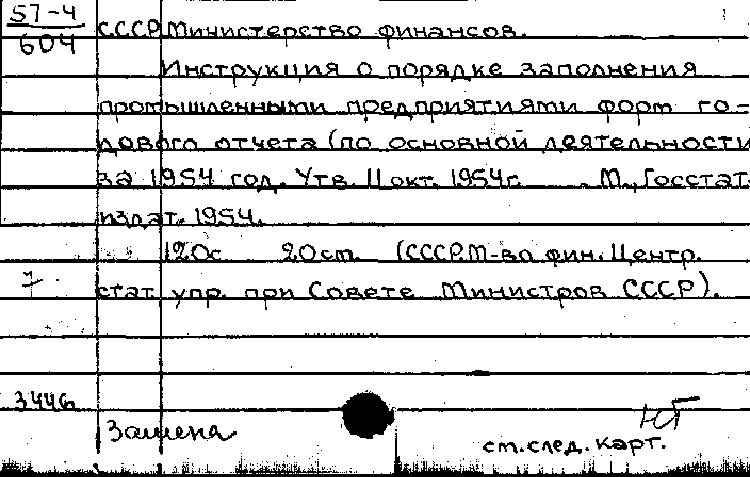 57-4
604
СССР. Министерство финансов.
Инструкция о порядке заполнения
промышленными предприятиями форм го-
дового отчета (по основной деятельности
за 1954 год. Утв. 11 окт. 1954г. М., Госстат-
издат. 1954.
120с 20см. (СССР. М-во фин. Центр.
стат. упр. при Совете Министров СССР).
Замена
см. след. карт.